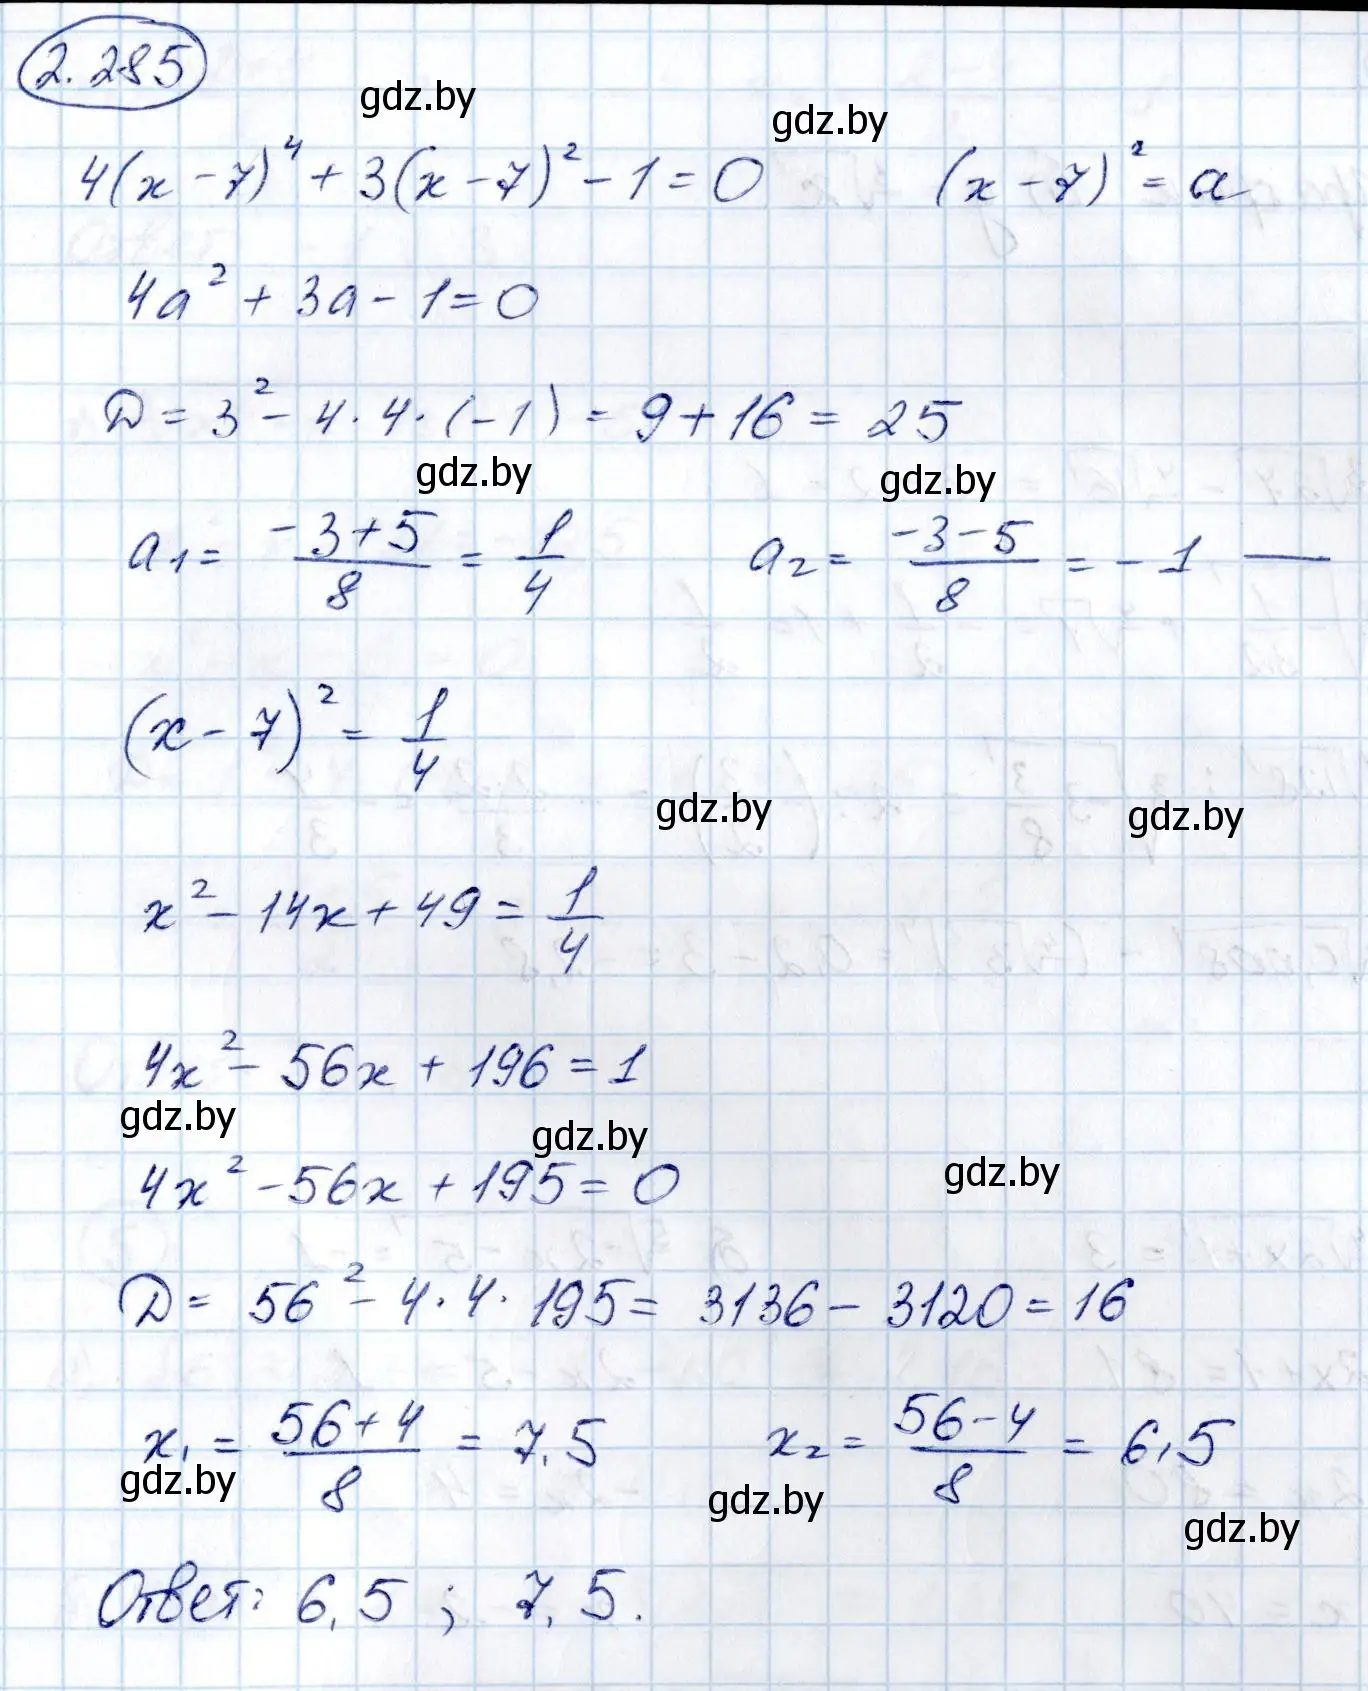 2.285
gdz.by gdz.by
4(x-7)⁴+3(x-7)²-1=0 (x-7)²=a
4a²+3a-1=0
D=3²-4·4·(-1)=9+16=25
gdz.by gdz.by
a₁=(-3+5)/8=1/4 a₂=(-3-5)/8=-1 —
(x-7)²=1/4
gdz.by gdz.by
x²-14x+49=1/4
4x²-56x+196=1
gdz.by gdz.by
4x²-56x+195=0 gdz.by
D=56²-4·4·195=3136-3120=16
x₁=(56+4)/8=7,5 x₂=(56-4)/8=6,5
gdz.by gdz.by gdz.by
Ответ: 6,5; 7,5.